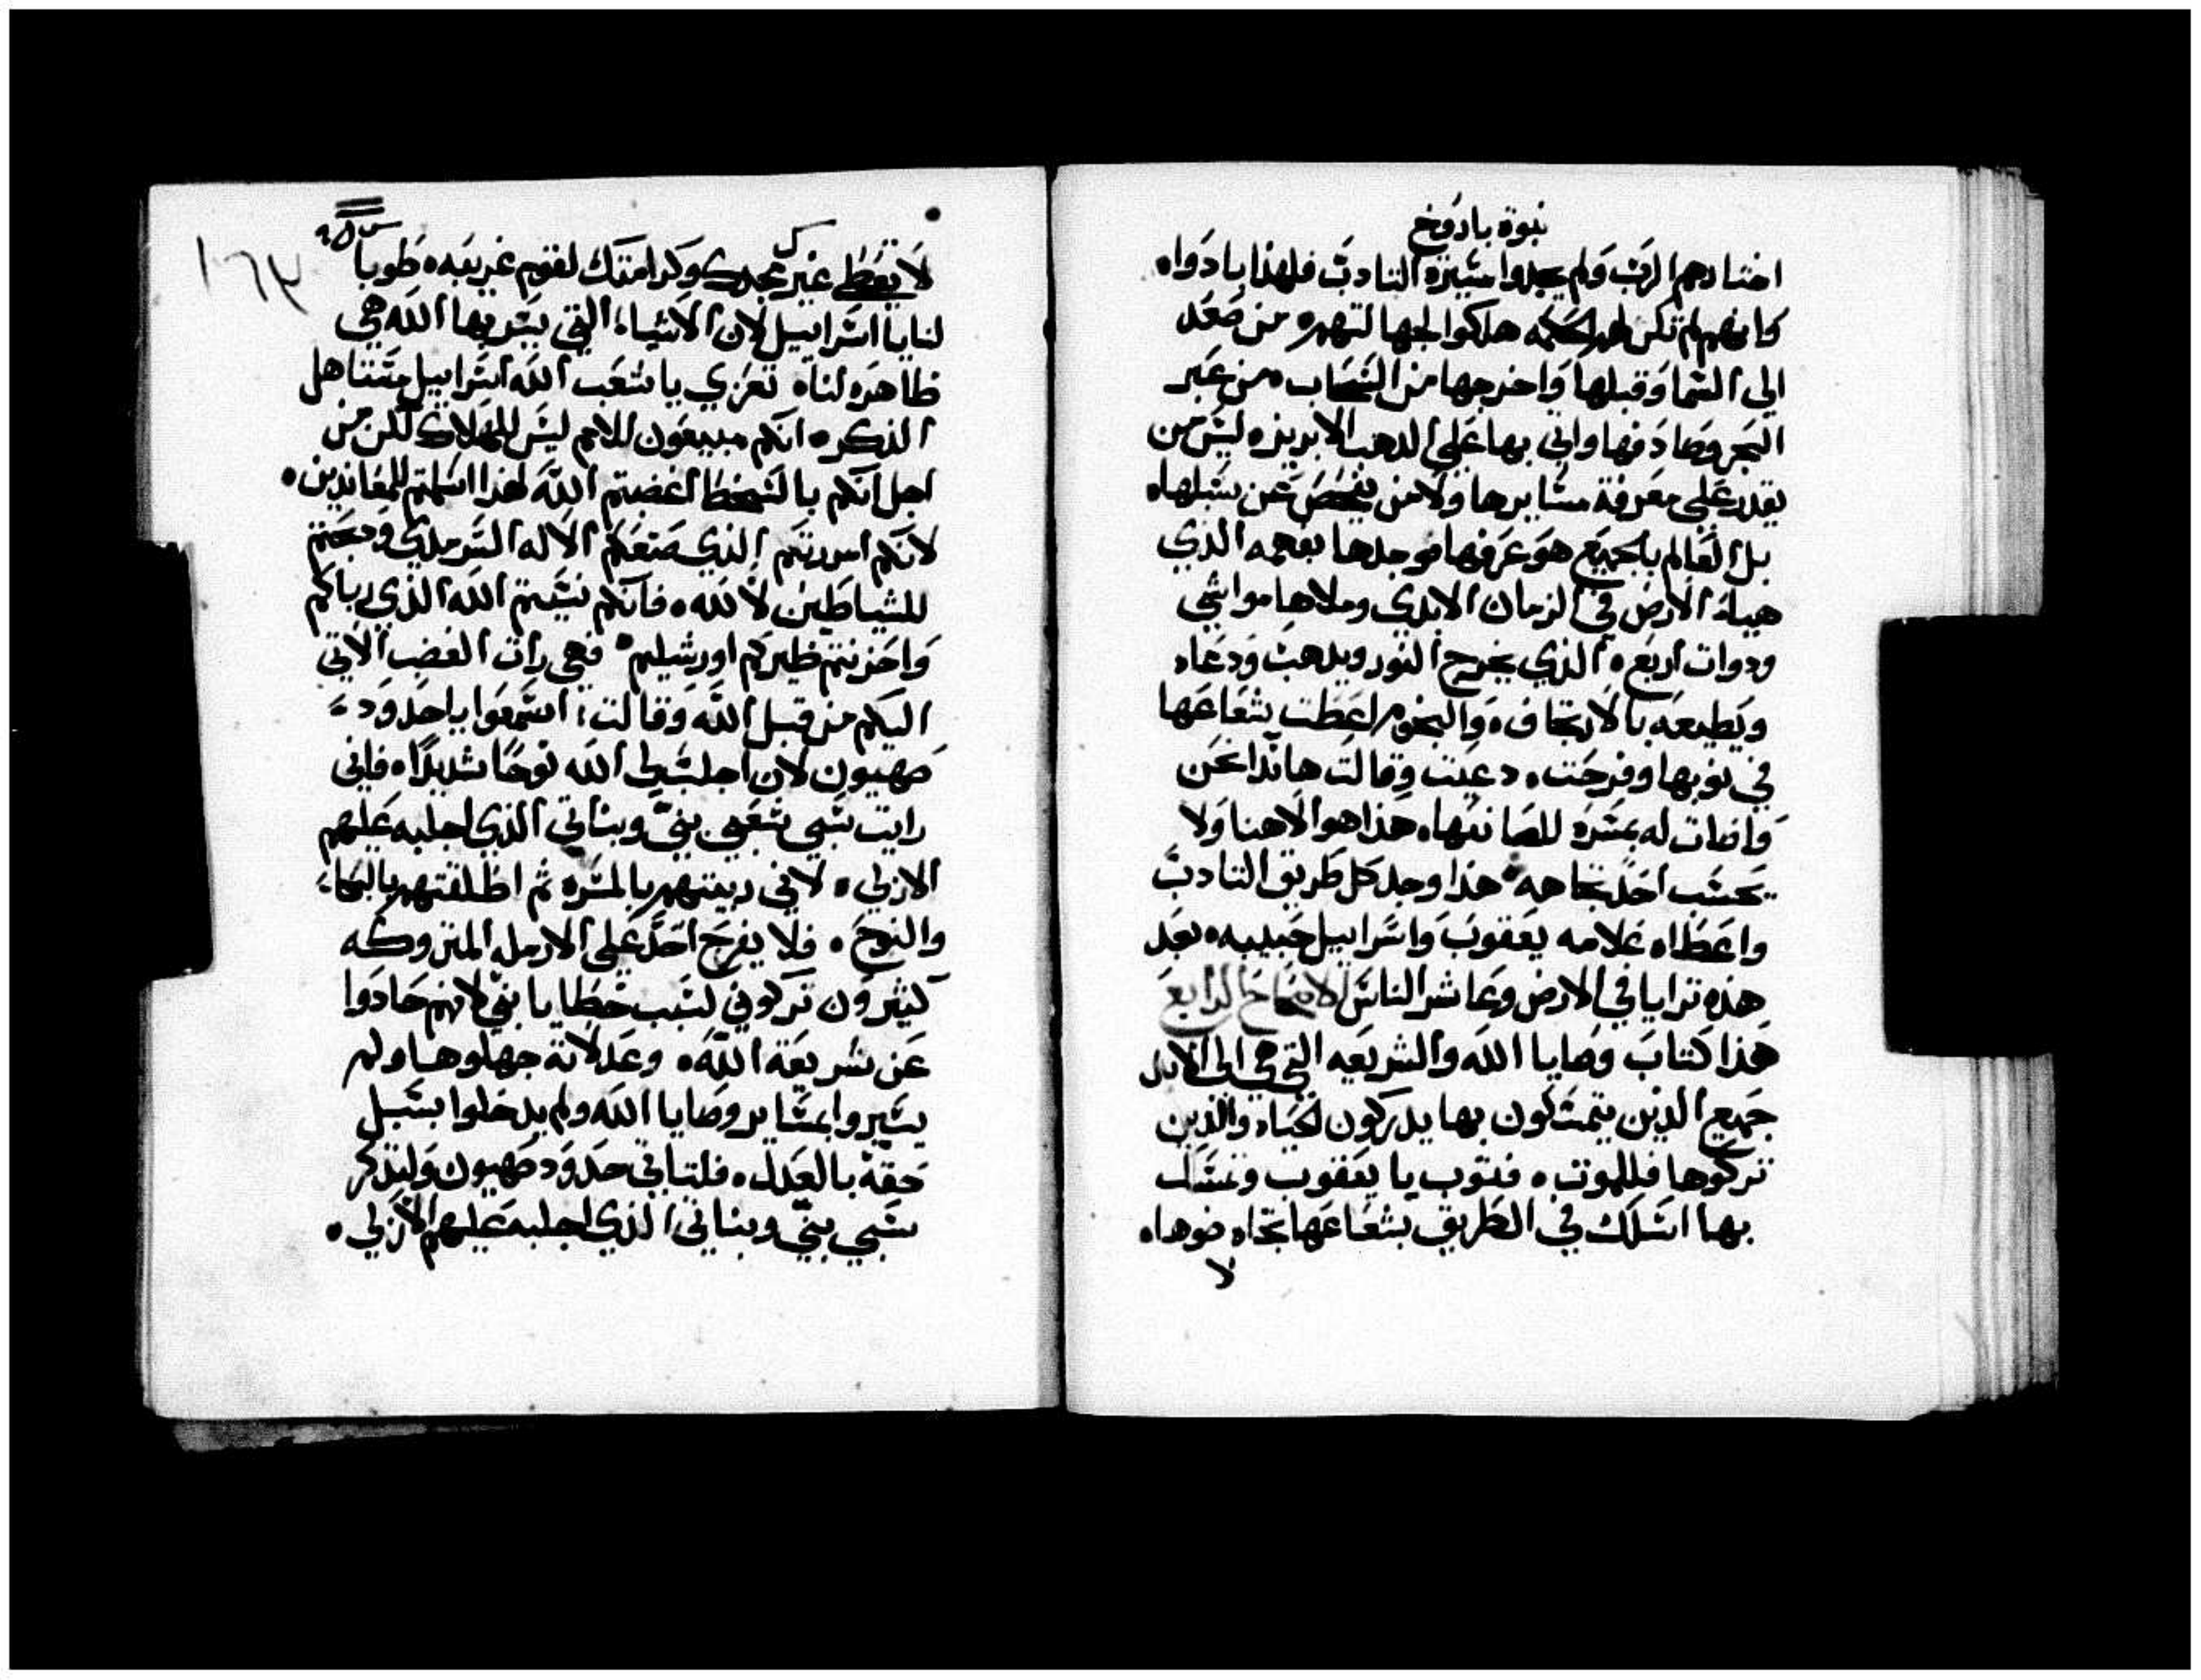 نبوة باروخ
اختارهم الرب ولم يجدوا مسيرة التادب فلهذا بادوا.
كانهم لم تكن لهم الحكمه هلكوا لجهالتهم. من صعد
الى السما وقبلها واخرجها من السحاب. من عبر
البحر وصادفها واتي بها على الدهب الابريز. ليس من
يقدر على معرفة مسايرها ولا من يفحص عن سبلها.
بل العالم بالجميع هو عرفها موجدها بفهمه الذي
هيا الارض في الزمان الابدي وملاها مواشي
ودوات اربع. الذي يخرج النور ويدهب ودعاه
ويطيعه بالارتجاف. والنجوم اعطت شعاعها
في نوبها وفرحت. دعيت وقالت هانذا نحن
واضات له بمسرة للصانعها. هذا هو الاهنا ولا
يحسب احد تجاهه. هذا وجد كل طريق التادب
واعطاه غلامه يعقوب واسراييل حبيبه. بعد
هذه ترايا في الارض وعاشر الناس الاصحاح الرابع
هذا كتاب وصايا الله والشريعه التي هي الى الابد
جميع الذين يتمسكون بها يدركون الحياه والذين
تركوها فللموت. فتوب يا يعقوب وتمسك
بها اسلك في الطريق بشعاعها تجاه ضوها.
لا
١٦٣
لا تعطي غيرك مجدك وكرامتك لقوم غريبه. طوبا
لنايا اسراييل لان الاشياء التي يسر بها الله هي
ظاهره لنا. تعزي يا شعب الله اسراييل مستاهل
الذكر. انكم مبيعون للامم ليس للهلاك لكن من
اجل انكم بالسخط اغضبتم الله لهذا اسلمتم للمعاندين.
لانكم امررتم الذي صنعكم الاله السرمدي ودبحتم
للشياطين لا لله. فانكم نسيتم الله الذي رباكم
واحزنتم ظيركم اورشليم. فهي رات الغضب الاتي
اليكم من قبل الله وقالت: اسمعوا يا حدود
صهيون لان اجلب لي الله نوحًا شديدًا. فاني
رايت سبي شعبي بنيّ وبناتي الذي اجلبه عليهم
الازلي. لاني ربيتهم بالمسره ثم اطلقتهم بالبكاء
والنوح. فلا يفرح احدٌ على الارمله المتروكه
كثيرون تركوني لسبب خطايا بنيّ لانهم حادوا
عن شريعة الله. وعدلاته جهلوها ولم
يسيروا بمساير وصايا الله ولم يدخلوا بسبل
حقه بالعدل. فلتاتي حدود صهيون ولتذكر
سبي بنيّ وبناتي الذي اجلبه عليهم الازلي.